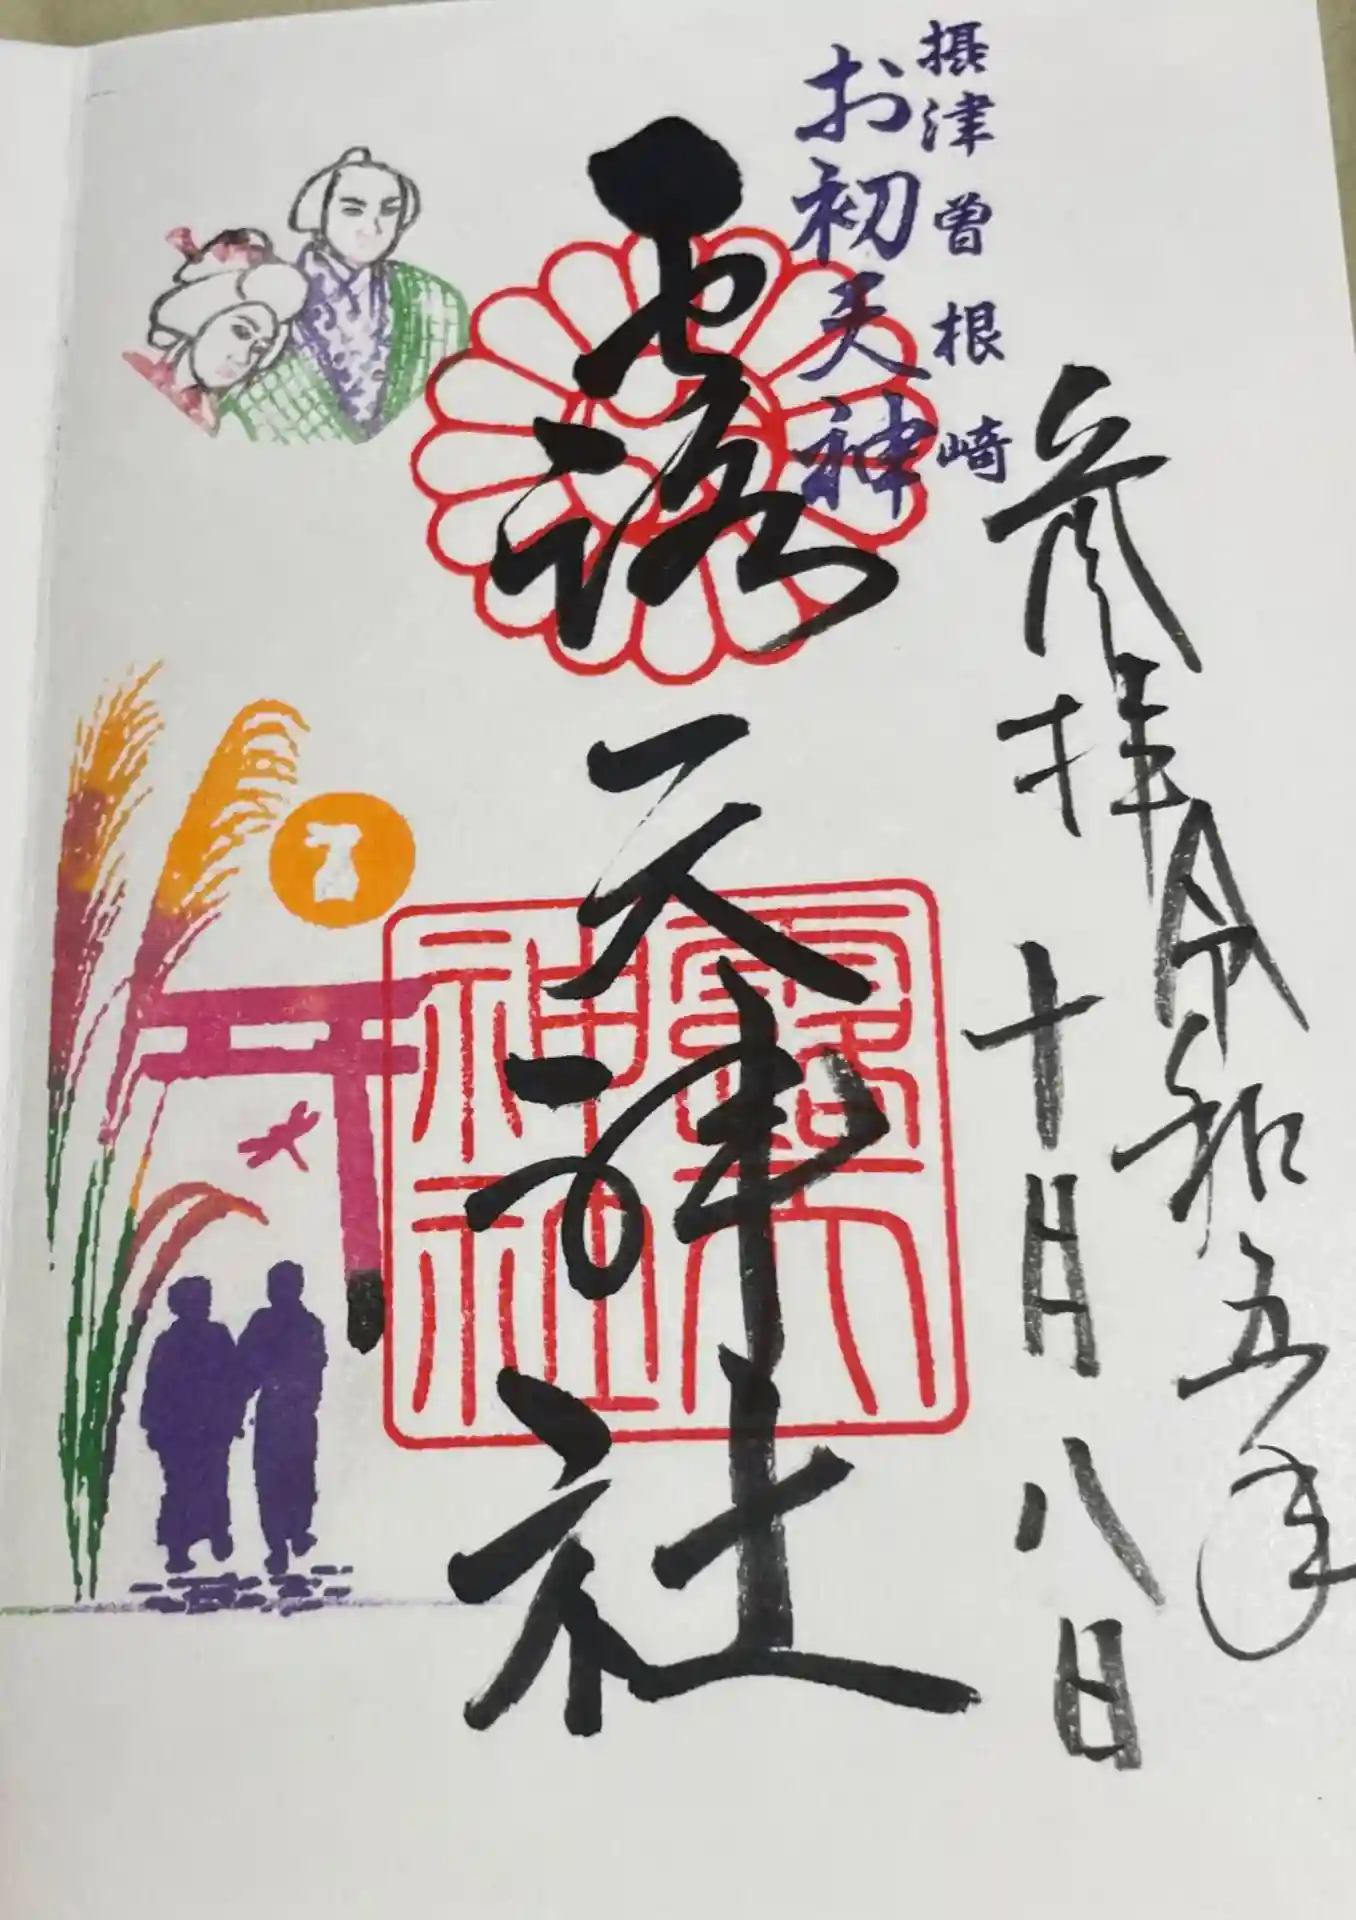 参拝令和五年
十月八日
摂津曽根崎
お初天神
露天神社
露天神社